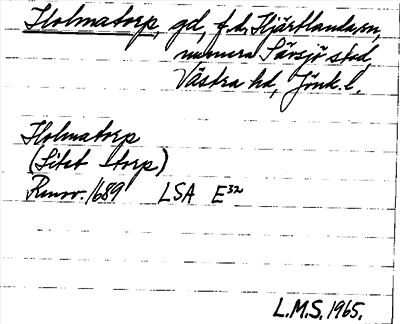 Holmatorp, gd, f.d. Hjärtlanda sn,
numera Sävsjö stad,
Västra hd, Jönk. l.
Holmatorp
(Litet torp)
Renov. 1689 LSA E³²
L.M.S. 1965.